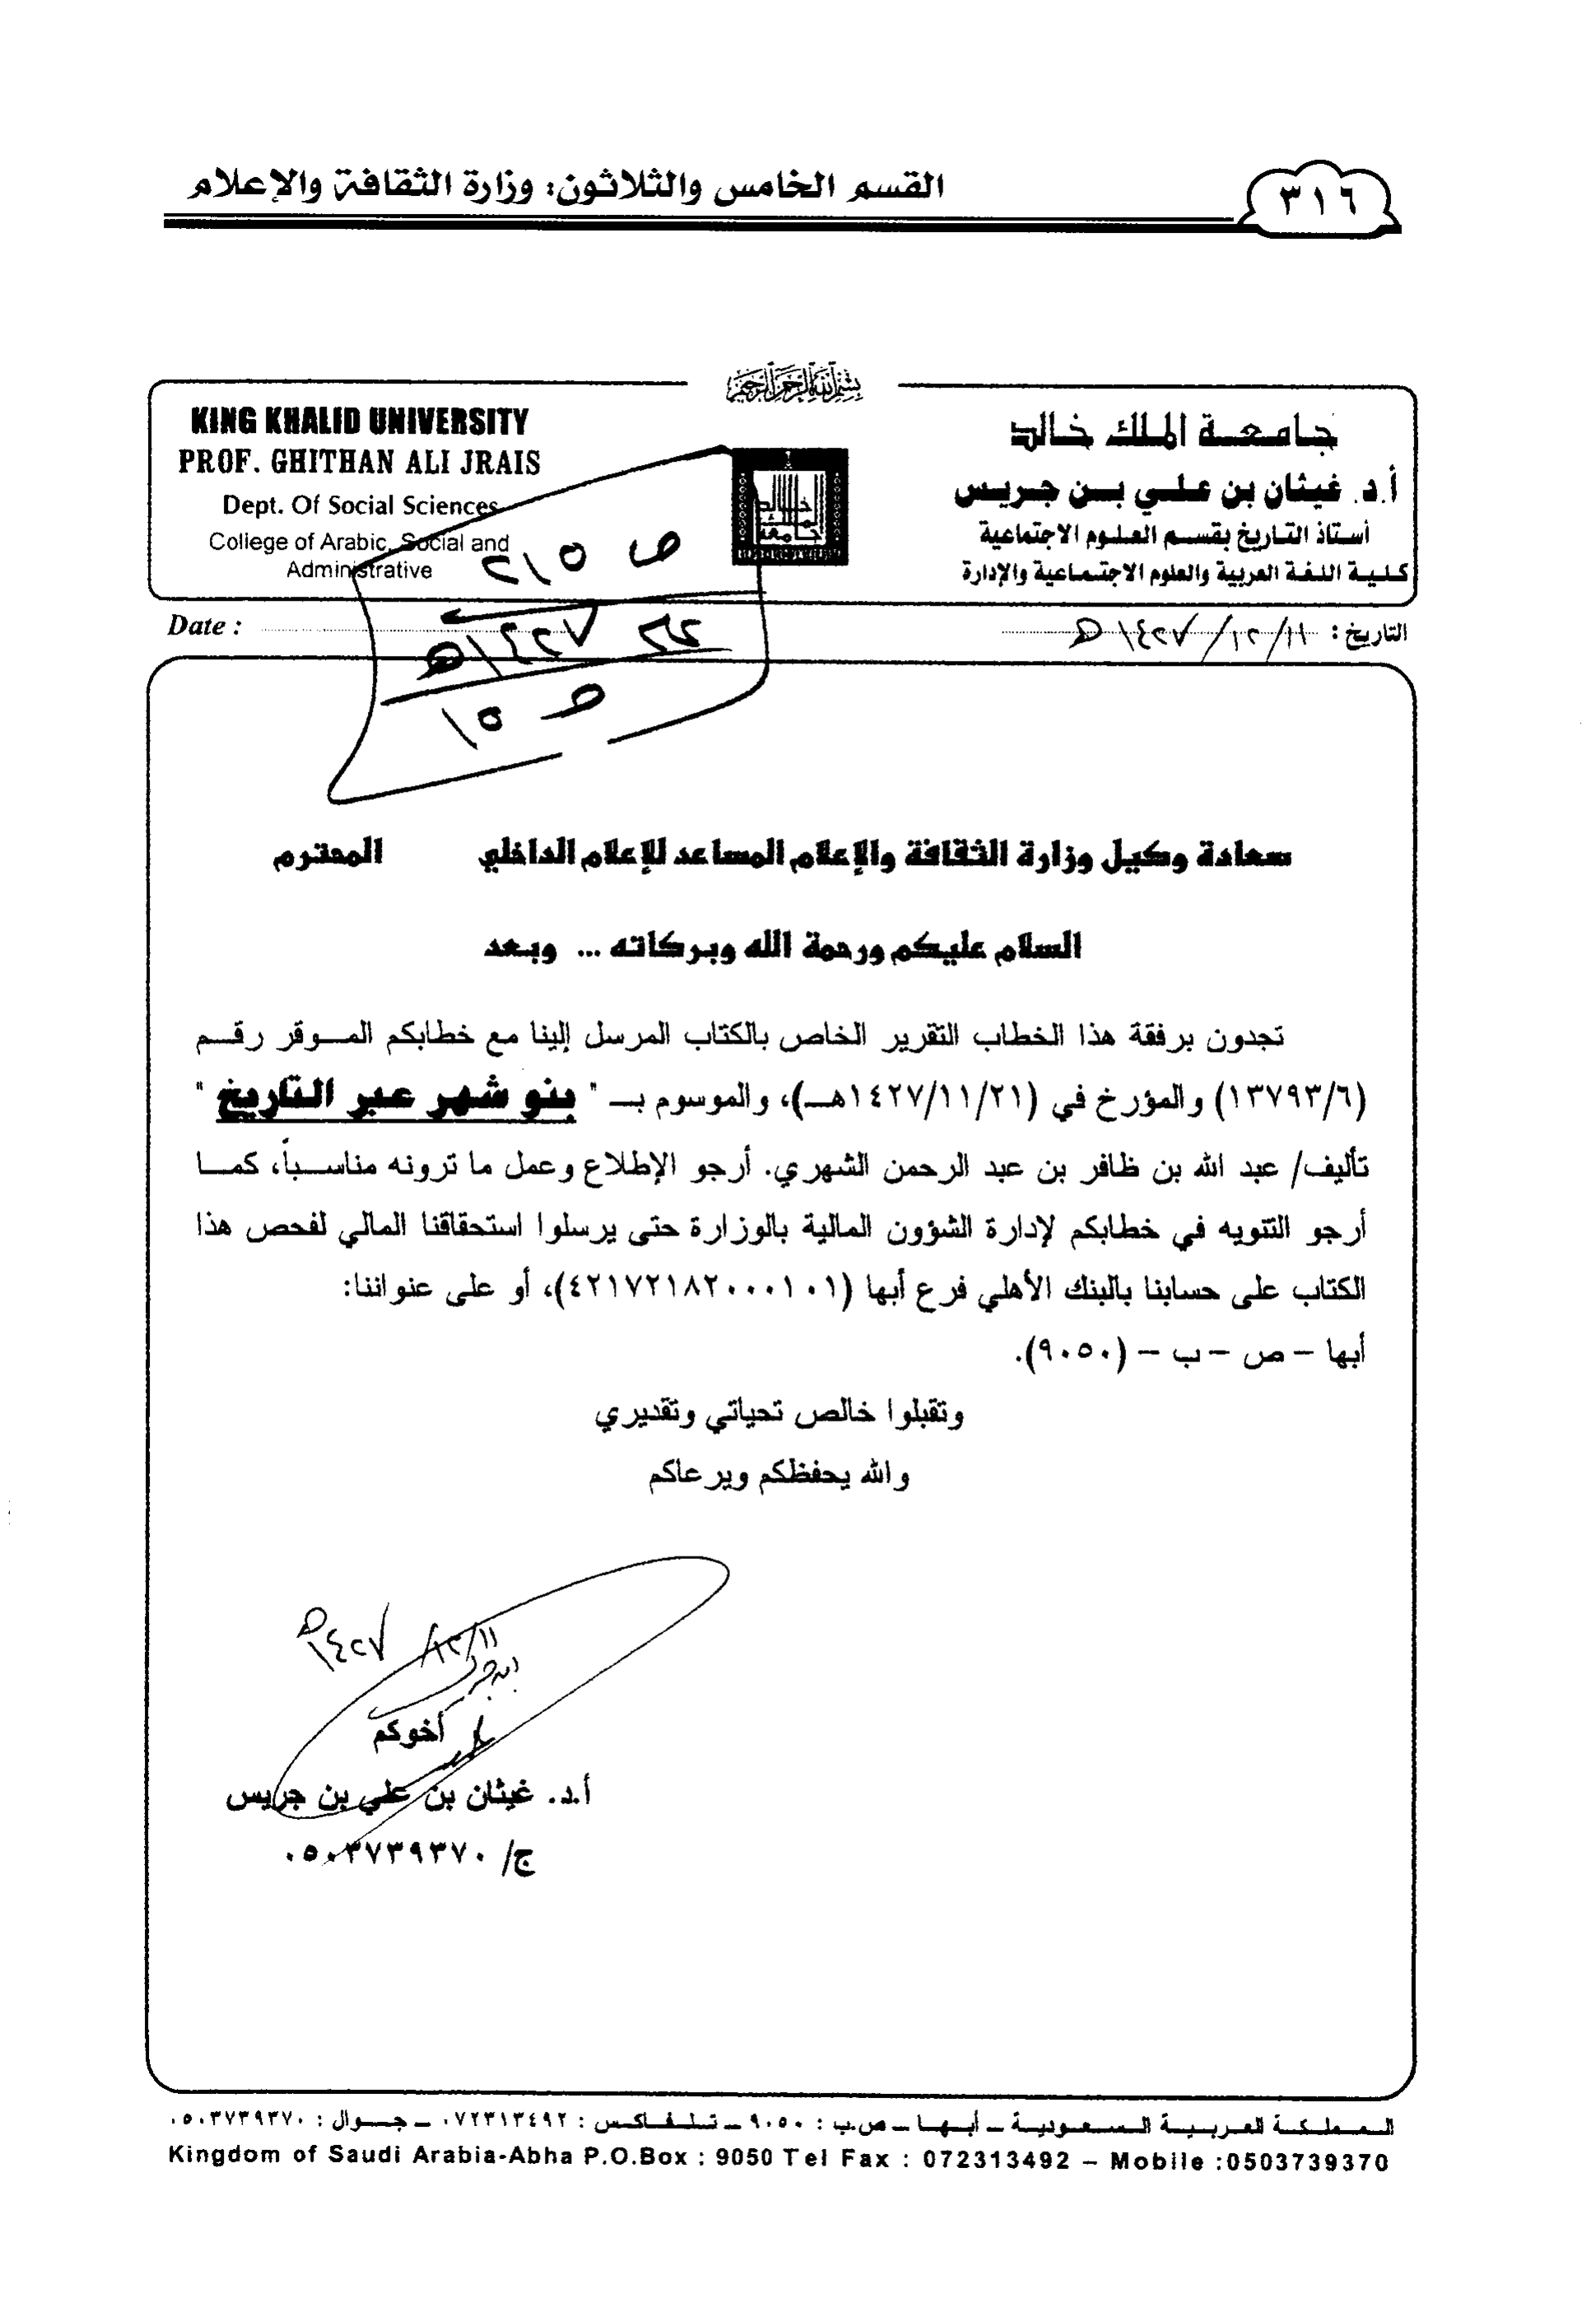 القسم الخامس والثلاثون: وزارة الثقافة والإعلام
٣١٦
بسم الله الرحمن الرحيم
جامعة الملك خالد
أ.د. غيثان بن علي بن جريس
أستاذ التاريخ بقسم العلوم الاجتماعية
كلية اللغة العربية والعلوم الاجتماعية والإدارة
KING KHALID UNIVERSITY
PROF. GHITHAN ALI JRAIS
Dept. Of Social Sciences
College of Arabic, Social and
Administrative
ص ٢١٥
١٤٢٧هـ
ص ١٥
التاريخ : ١١/١٢/١٤٢٧هـ
Date :
سعادة وكيل وزارة الثقافة والإعلام المساعد للإعلام الداخلي المحترم
السلام عليكم ورحمة الله وبركاته ... وبعد
تجدون برفقة هذا الخطاب التقرير الخاص بالكتاب المرسل إلينا مع خطابكم الموقر رقم
(١٣٧٩٣/٦) والمؤرخ في (١٤٢٧/١١/٢١هـ)، والموسوم بـ " بنو شهر عبر التاريخ "
تأليف/ عبد الله بن ظافر بن عبد الرحمن الشهري. أرجو الإطلاع وعمل ما ترونه مناسباً، كما
أرجو التنويه في خطابكم لإدارة الشؤون المالية بالوزارة حتى يرسلوا استحقاقنا المالي لفحص هذا
الكتاب على حسابنا بالبنك الأهلي فرع أبها (٤٢١٧٢١٨٢٠٠٠١٠١)، أو على عنواننا:
أبها – ص – ب – (٩٠٥٠).
وتقبلوا خالص تحياتي وتقديري
والله يحفظكم ويرعاكم
١١/١٢/١٤٢٧هـ
أخوكم
أ.د. غيثان بن علي بن جريس
ج/ ٠٥٠٣٧٣٩٣٧٠
المملكة العربية السعودية – أبها – ص.ب : ٩٠٥٠ – تلفاكس : ٠٧٢٣١٣٤٩٢ – جوال : ٠٥٠٣٧٣٩٣٧٠
Kingdom of Saudi Arabia-Abha P.O.Box : 9050 Tel Fax : 072313492 – Mobile :0503739370